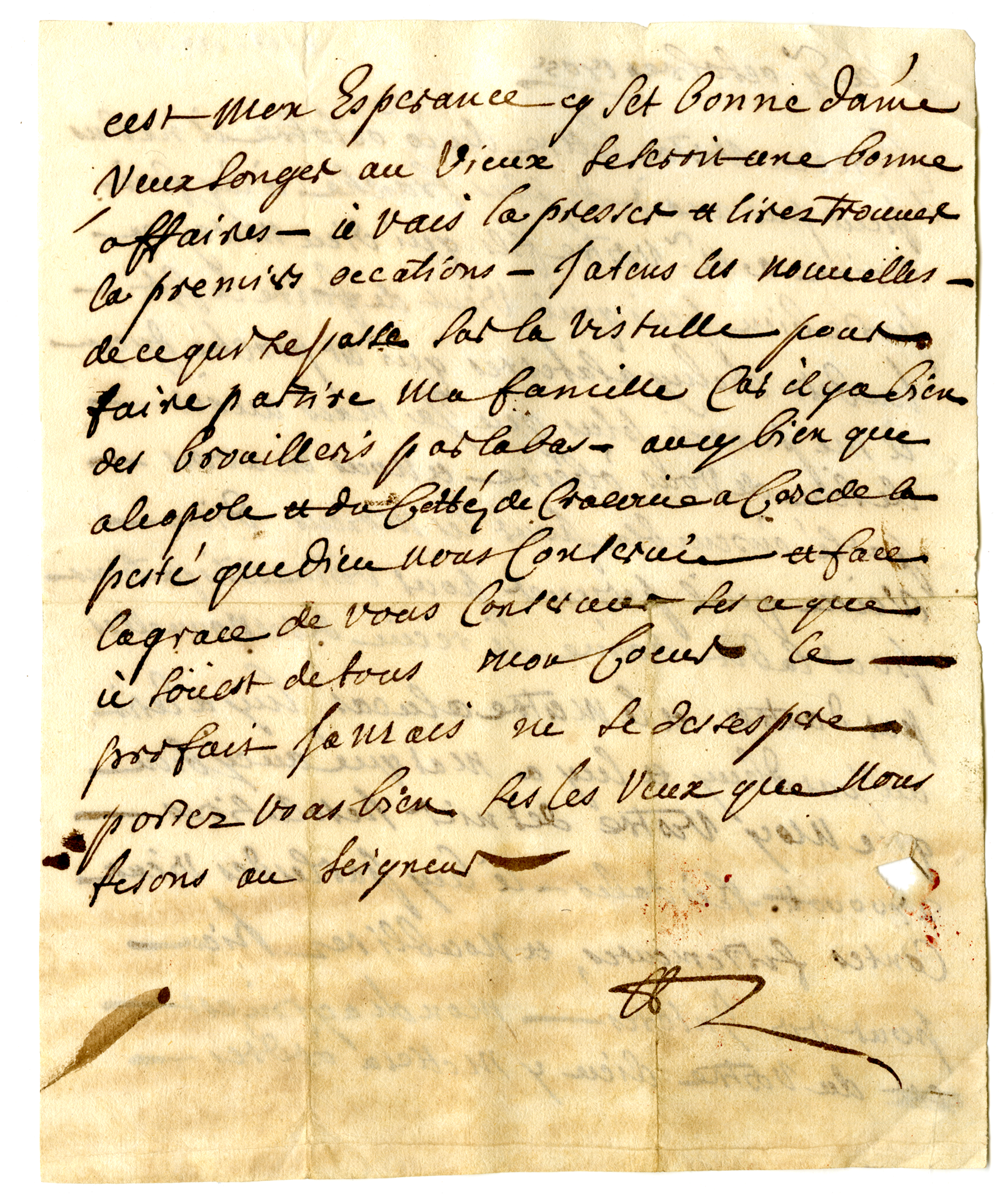 cest Mon Esperance cy Set bonne dame
Veux songer au Vieux Se Seroit une bonne
affaires – ie vais la presser et lirez trouver
la premirs occations – Jatens les nouuelles –
de ce qui se passe Sur la Vistulle pour
faire partire Ma famille Car il y a bien
des brouilleris par labas – aucy bien que
a leopole et du Cotté de Cracovie a Cose de la
peste que dieu nous Conservie et face
la grace de vous Conserver Ses ce que
ie soüest de tous mon Coeur le —
parfait Jamais ne se desespere
portez vous bien Ses les Veux que Nous
fesons au Seigneur